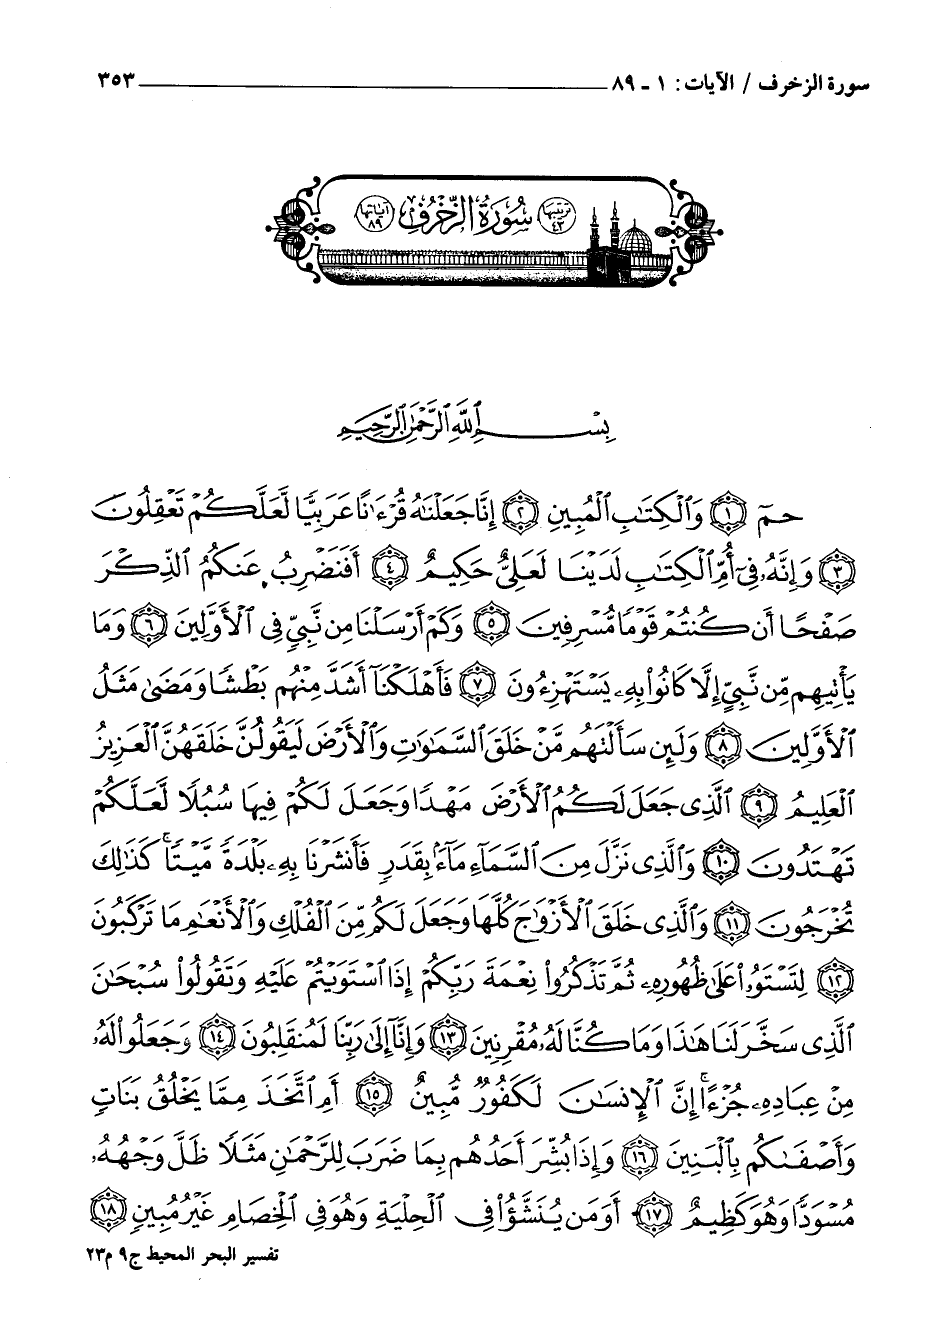 سورة الزخرف / الآيات: ١ - ٨٩ ٣٥٣
ترتيبها ٤٣ سُورَةُ الزُّخْرُفِ آياتها ٨٩
بِسْمِ ٱللَّهِ ٱلرَّحْمَٰنِ ٱلرَّحِيمِ
حمٓ ﴿١﴾ وَٱلْكِتَٰبِ ٱلْمُبِينِ ﴿٢﴾ إِنَّا جَعَلْنَٰهُ قُرْءَٰنًا عَرَبِيًّا لَّعَلَّكُمْ تَعْقِلُونَ
﴿٣﴾ وَإِنَّهُۥ فِىٓ أُمِّ ٱلْكِتَٰبِ لَدَيْنَا لَعَلِىٌّ حَكِيمٌ ﴿٤﴾ أَفَنَضْرِبُ عَنكُمُ ٱلذِّكْرَ
صَفْحًا أَن كُنتُمْ قَوْمًا مُّسْرِفِينَ ﴿٥﴾ وَكَمْ أَرْسَلْنَا مِن نَّبِىٍّ فِى ٱلْأَوَّلِينَ ﴿٦﴾ وَمَا
يَأْتِيهِم مِّن نَّبِىٍّ إِلَّا كَانُوا۟ بِهِۦ يَسْتَهْزِءُونَ ﴿٧﴾ فَأَهْلَكْنَآ أَشَدَّ مِنْهُم بَطْشًا وَمَضَىٰ مَثَلُ
ٱلْأَوَّلِينَ ﴿٨﴾ وَلَئِن سَأَلْتَهُم مَّنْ خَلَقَ ٱلسَّمَٰوَٰتِ وَٱلْأَرْضَ لَيَقُولُنَّ خَلَقَهُنَّ ٱلْعَزِيزُ
ٱلْعَلِيمُ ﴿٩﴾ ٱلَّذِى جَعَلَ لَكُمُ ٱلْأَرْضَ مَهْدًا وَجَعَلَ لَكُمْ فِيهَا سُبُلًا لَّعَلَّكُمْ
تَهْتَدُونَ ﴿١٠﴾ وَٱلَّذِى نَزَّلَ مِنَ ٱلسَّمَآءِ مَآءًۢ بِقَدَرٍ فَأَنشَرْنَا بِهِۦ بَلْدَةً مَّيْتًا ۚ كَذَٰلِكَ
تُخْرَجُونَ ﴿١١﴾ وَٱلَّذِى خَلَقَ ٱلْأَزْوَٰجَ كُلَّهَا وَجَعَلَ لَكُم مِّنَ ٱلْفُلْكِ وَٱلْأَنْعَٰمِ مَا تَرْكَبُونَ
﴿١٢﴾ لِتَسْتَوُۥا۟ عَلَىٰ ظُهُورِهِۦ ثُمَّ تَذْكُرُوا۟ نِعْمَةَ رَبِّكُمْ إِذَا ٱسْتَوَيْتُمْ عَلَيْهِ وَتَقُولُوا۟ سُبْحَٰنَ
ٱلَّذِى سَخَّرَ لَنَا هَٰذَا وَمَا كُنَّا لَهُۥ مُقْرِنِينَ ﴿١٣﴾ وَإِنَّآ إِلَىٰ رَبِّنَا لَمُنقَلِبُونَ ﴿١٤﴾ وَجَعَلُوا۟ لَهُۥ
مِنْ عِبَادِهِۦ جُزْءًا ۚ إِنَّ ٱلْإِنسَٰنَ لَكَفُورٌ مُّبِينٌ ﴿١٥﴾ أَمِ ٱتَّخَذَ مِمَّا يَخْلُقُ بَنَاتٍ
وَأَصْفَىٰكُم بِٱلْبَنِينَ ﴿١٦﴾ وَإِذَا بُشِّرَ أَحَدُهُم بِمَا ضَرَبَ لِلرَّحْمَٰنِ مَثَلًا ظَلَّ وَجْهُهُۥ
مُسْوَدًّا وَهُوَ كَظِيمٌ ﴿١٧﴾ أَوَمَن يُنَشَّؤُا۟ فِى ٱلْحِلْيَةِ وَهُوَ فِى ٱلْخِصَامِ غَيْرُ مُبِينٍ ﴿١٨﴾
تفسير البحر المحيط ج٩ م٢٣